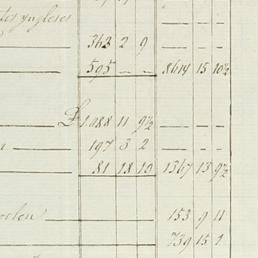 Ingleses
363 2 9
595 — — 8614 15 10½
£1.088 11 9½
197 3 2
81 18 10 1367 13 9½
153 9 11
739 15 1